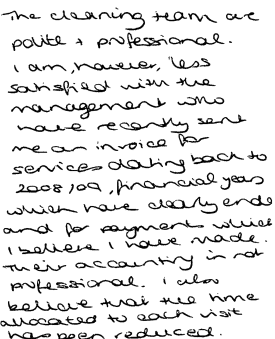 The cleaning team are
polite + professional.
I am, however, less
satisfied with the
management who
have recently sent
me an invoice for
services dating back to
2008/09, financial years
which have clearly ende
and for payments which
I believe I have made.
Their accounting is not
professional. I also
believe that the time
allocated to each visit
has been reduced.